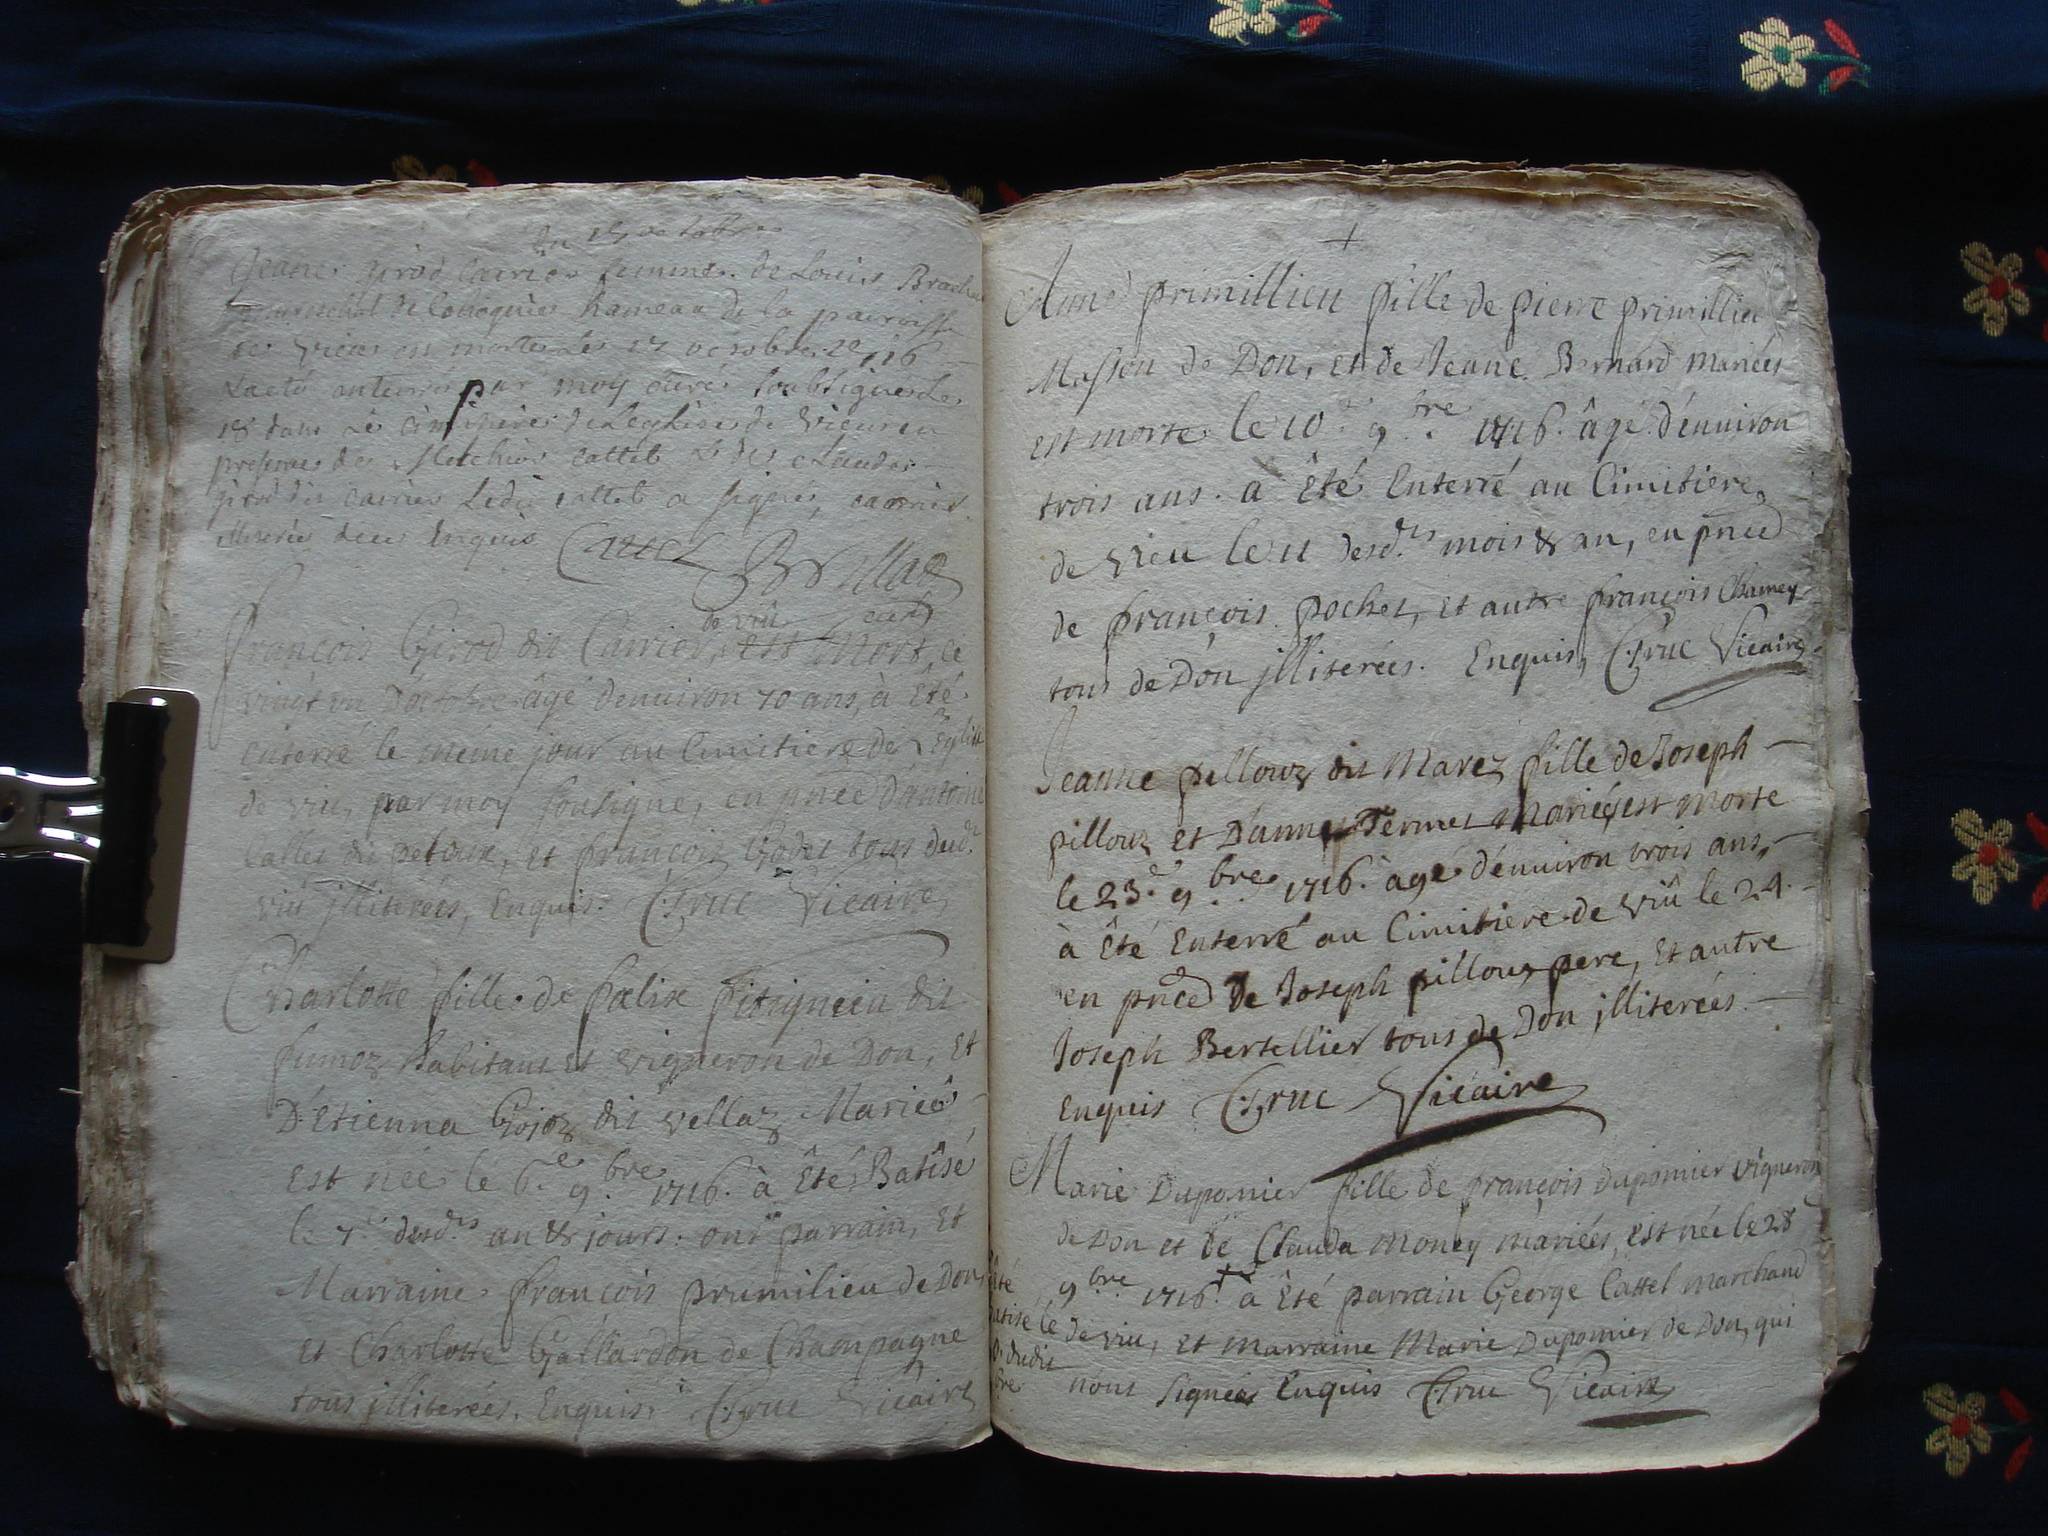 du 18 octobre
Jeane girod Carrier femme de Louis Brachet
marechal de Conogniés hameau de la parroisse
de Vieu en morte les 17 octobre 1716
Laeté anterré par moy Curé soubsigner Le
18 dans Le Cimitiere de Leglise de Vieu en
presences de Melchior Cattel & de Claude
girod dit Carrier Ledit Cattel a signé, Carrier
illiterée dece Enquis Cattel Brillat
curé
de viû
François Girod dit Carrier, est mort, ce
vingt un D'octobre âgé denuiron 70 ans, à Été
enterré le même jour au Cimitiere de L'Eglise
de viu, par moy sousigné, en pnce D'antoine
Callet dit petoux, et françois Godet tous dud.t
viû jlliterées, Enquis. C: truc Vicaire
Charlotte fille de fœlix fitignieu dit
fumoz habitant et vigneron de Don, Et
D'Etienna Gojoz dit vellaz Mariés
Est née le 6.e 9.bre 1716. à Été Batisé
le 7.e desd.ts an & jours. ont parrain, Et
Marraine françois prumilieu de Don
Et Charlotte Gallardon de Champagne
tous jlliterées. Enquis, C: truc Vicaire
Anne primillieu fille de pierre primillieu
Masson de Don, et de Jeane Bernard mariées
est morte le 10.e 9.bre 1716. âgé d'énuiron
trois ans. à Été Enterré au Cimitiere
de vieu le 11 desd.ts mois & an, en pnce
de françois pochet, et autre françois Chamey
tous de Don jlliterées. Enquis, C: truc Vicaire
Jeanne pillouz dit Marez fille de Joseph
pillouz et D'anne Termet Mariés, est morte
le 23.e 9.bre 1716. âgé d'énuiron trois ans,
à Été Enterré au Cimitiere de viû le 24.
en pnce de Joseph pillouz pere, Et autre
Joseph Bertellier tous de Don jlliterées.
Enquis C: truc Vicaire
Marie Duponnier fille de françois Duponnier vigneron
de Don et de Clauda Money mariées, est née le 28
9.bre 1716. à Été parrain George Cattel marchand
de viu, Et marraine Marie Duponnier de Don, qui
nont signées Enquis C: truc Vicaire
Été
batise le
dudit
bre